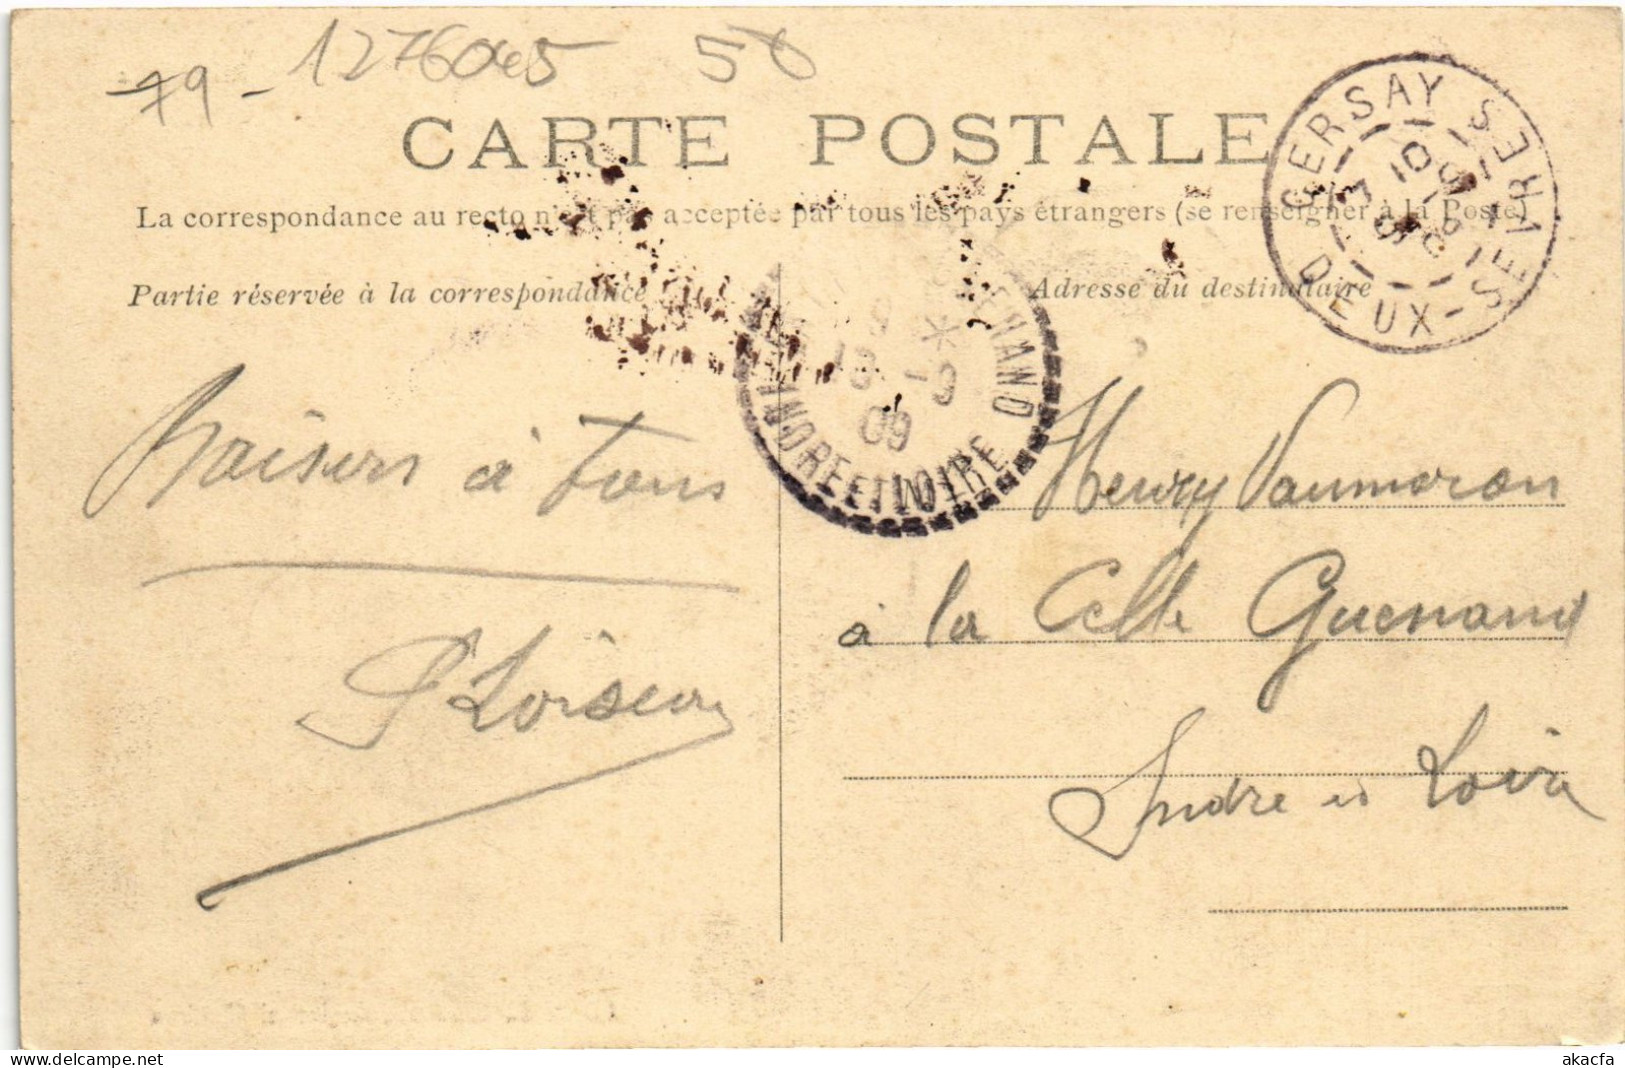 79 - 1276045 50
CARTE POSTALE
La correspondance au recto n'est pas acceptée par tous les pays étrangers (se renseigner à la Poste)
Partie réservée à la correspondance
Adresse du destinataire
GERSAY SEVRES
DEUX-SEVRES
INDRE ET LOIRE
09
Baisers à tous
Loiseau
Henry Vaumoron
à la Celle Guenand
Indre et Loire
www.delcampe.net
akacfa